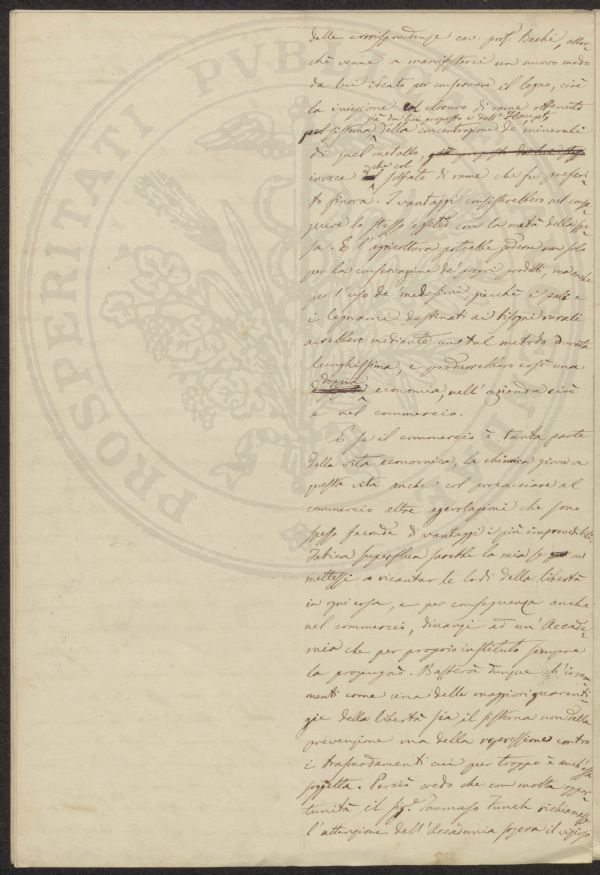 PROSPERITATI PVBLI
delle corrispondenze cav. prof. Bechi, allor-
chè venne a manifestarci un nuovo modo
da lui ideato per conservare il legno, cioè
la iniezione col cloruro di rame ottenuto
già da lui proposto e dall' Haupt
pel sistema della concentrazione de' minerali
di quel metallo,
invece che col solfato di rame che fu preferi-
to finora. I vantaggi consisterebbero nel conse-
guire lo stesso effetto con la metà della spe-
sa. E l'agricoltura potrebbe goderne non solo
per la conservazione de' propri prodotti, ma anche
per l'uso de' medesimi, giacchè i pali e
i legnami destinati ai bisogni rurali
avrebbero mediante un tal metodo durata
lunghissima, e produrrebbero così una
doppia economia, nell' azienda cioè
e nel commercio.
E se il commercio è tanta parte
della vita economica, la chimica giova a
questa vita anche col procacciare al
commercio altre agevolazioni che sono
spesso feconde di vantaggi i più imprevedibili.
Fatica superflua sarebbe la mia se mi
mettessi a ricantar le lodi della libertà
in ogni cosa, e per conseguenza anche
nel commercio, dinanzi ad un' Accade-
mia che per proprio instituto sempre
la propugnò. Basterà dunque ch' io ram-
menti come una delle maggiori guarenti-
gie della libertà sia il sistema non della
prevenzione ma della repressione contro
i trasmodamenti cui pur troppo è anch'essa
soggetta. Perciò credo che con molta oppor-
tunità il sig.r Tommaso richiamasse
l'attenzione dell' Accademia sopra il